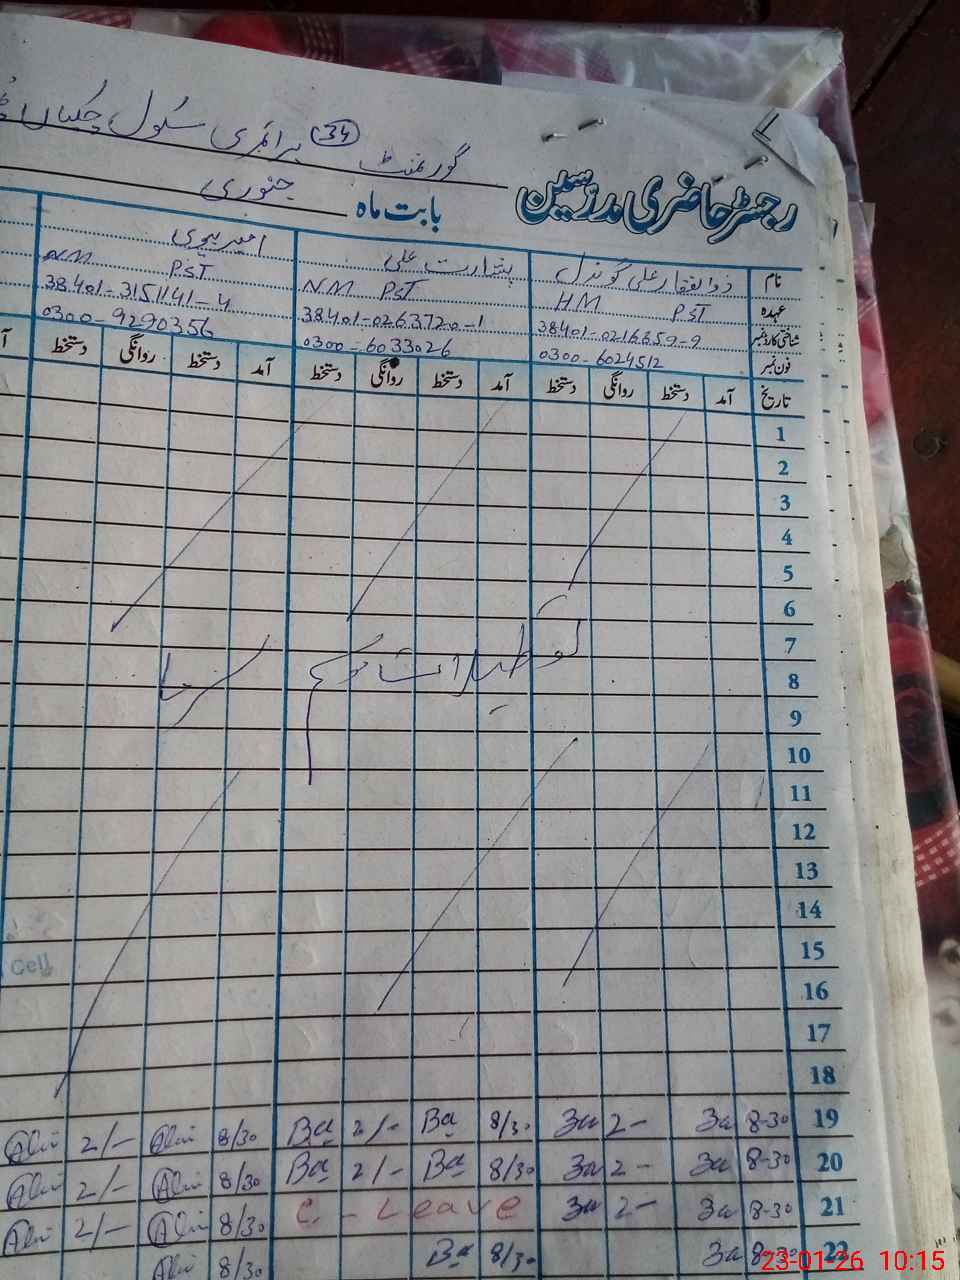 گورنمنٹ 34 پرائمری سکول چکیاں
رجسٹر حاضری مدرسین بابت ماہ جنوری
نام ذوالفقار علی گوندل بشارت علی امیر بی بی
عہدہ PST HM PST NM PST NM
شناختی کارڈ نمبر 38401-0216659-9 38401-0263720-1 38401-3151141-4
فون نمبر 0300-6024512 0300-6033026 0300-9290356
تاریخ آمد دستخط روانگی دستخط آمد دستخط روانگی دستخط آمد دستخط روانگی دستخط آ
1
2
3
4
5
6
7
تعطیلات موسم سرما
8
9
10
11
12
13
14
15
Cell
16
17
18
19 8-30 3a 2- 3a 8/30 Ba 2/- Ba 8/30 2/-
20 8-30 3a 2- 3a 8/30 Ba 2/- Ba 8/30 2/-
21 8-30 3a 2- 3a C-Leave 8/30 2/-
22 8-30 3a 8/30 Ba 8/30
23-01-26 10:15